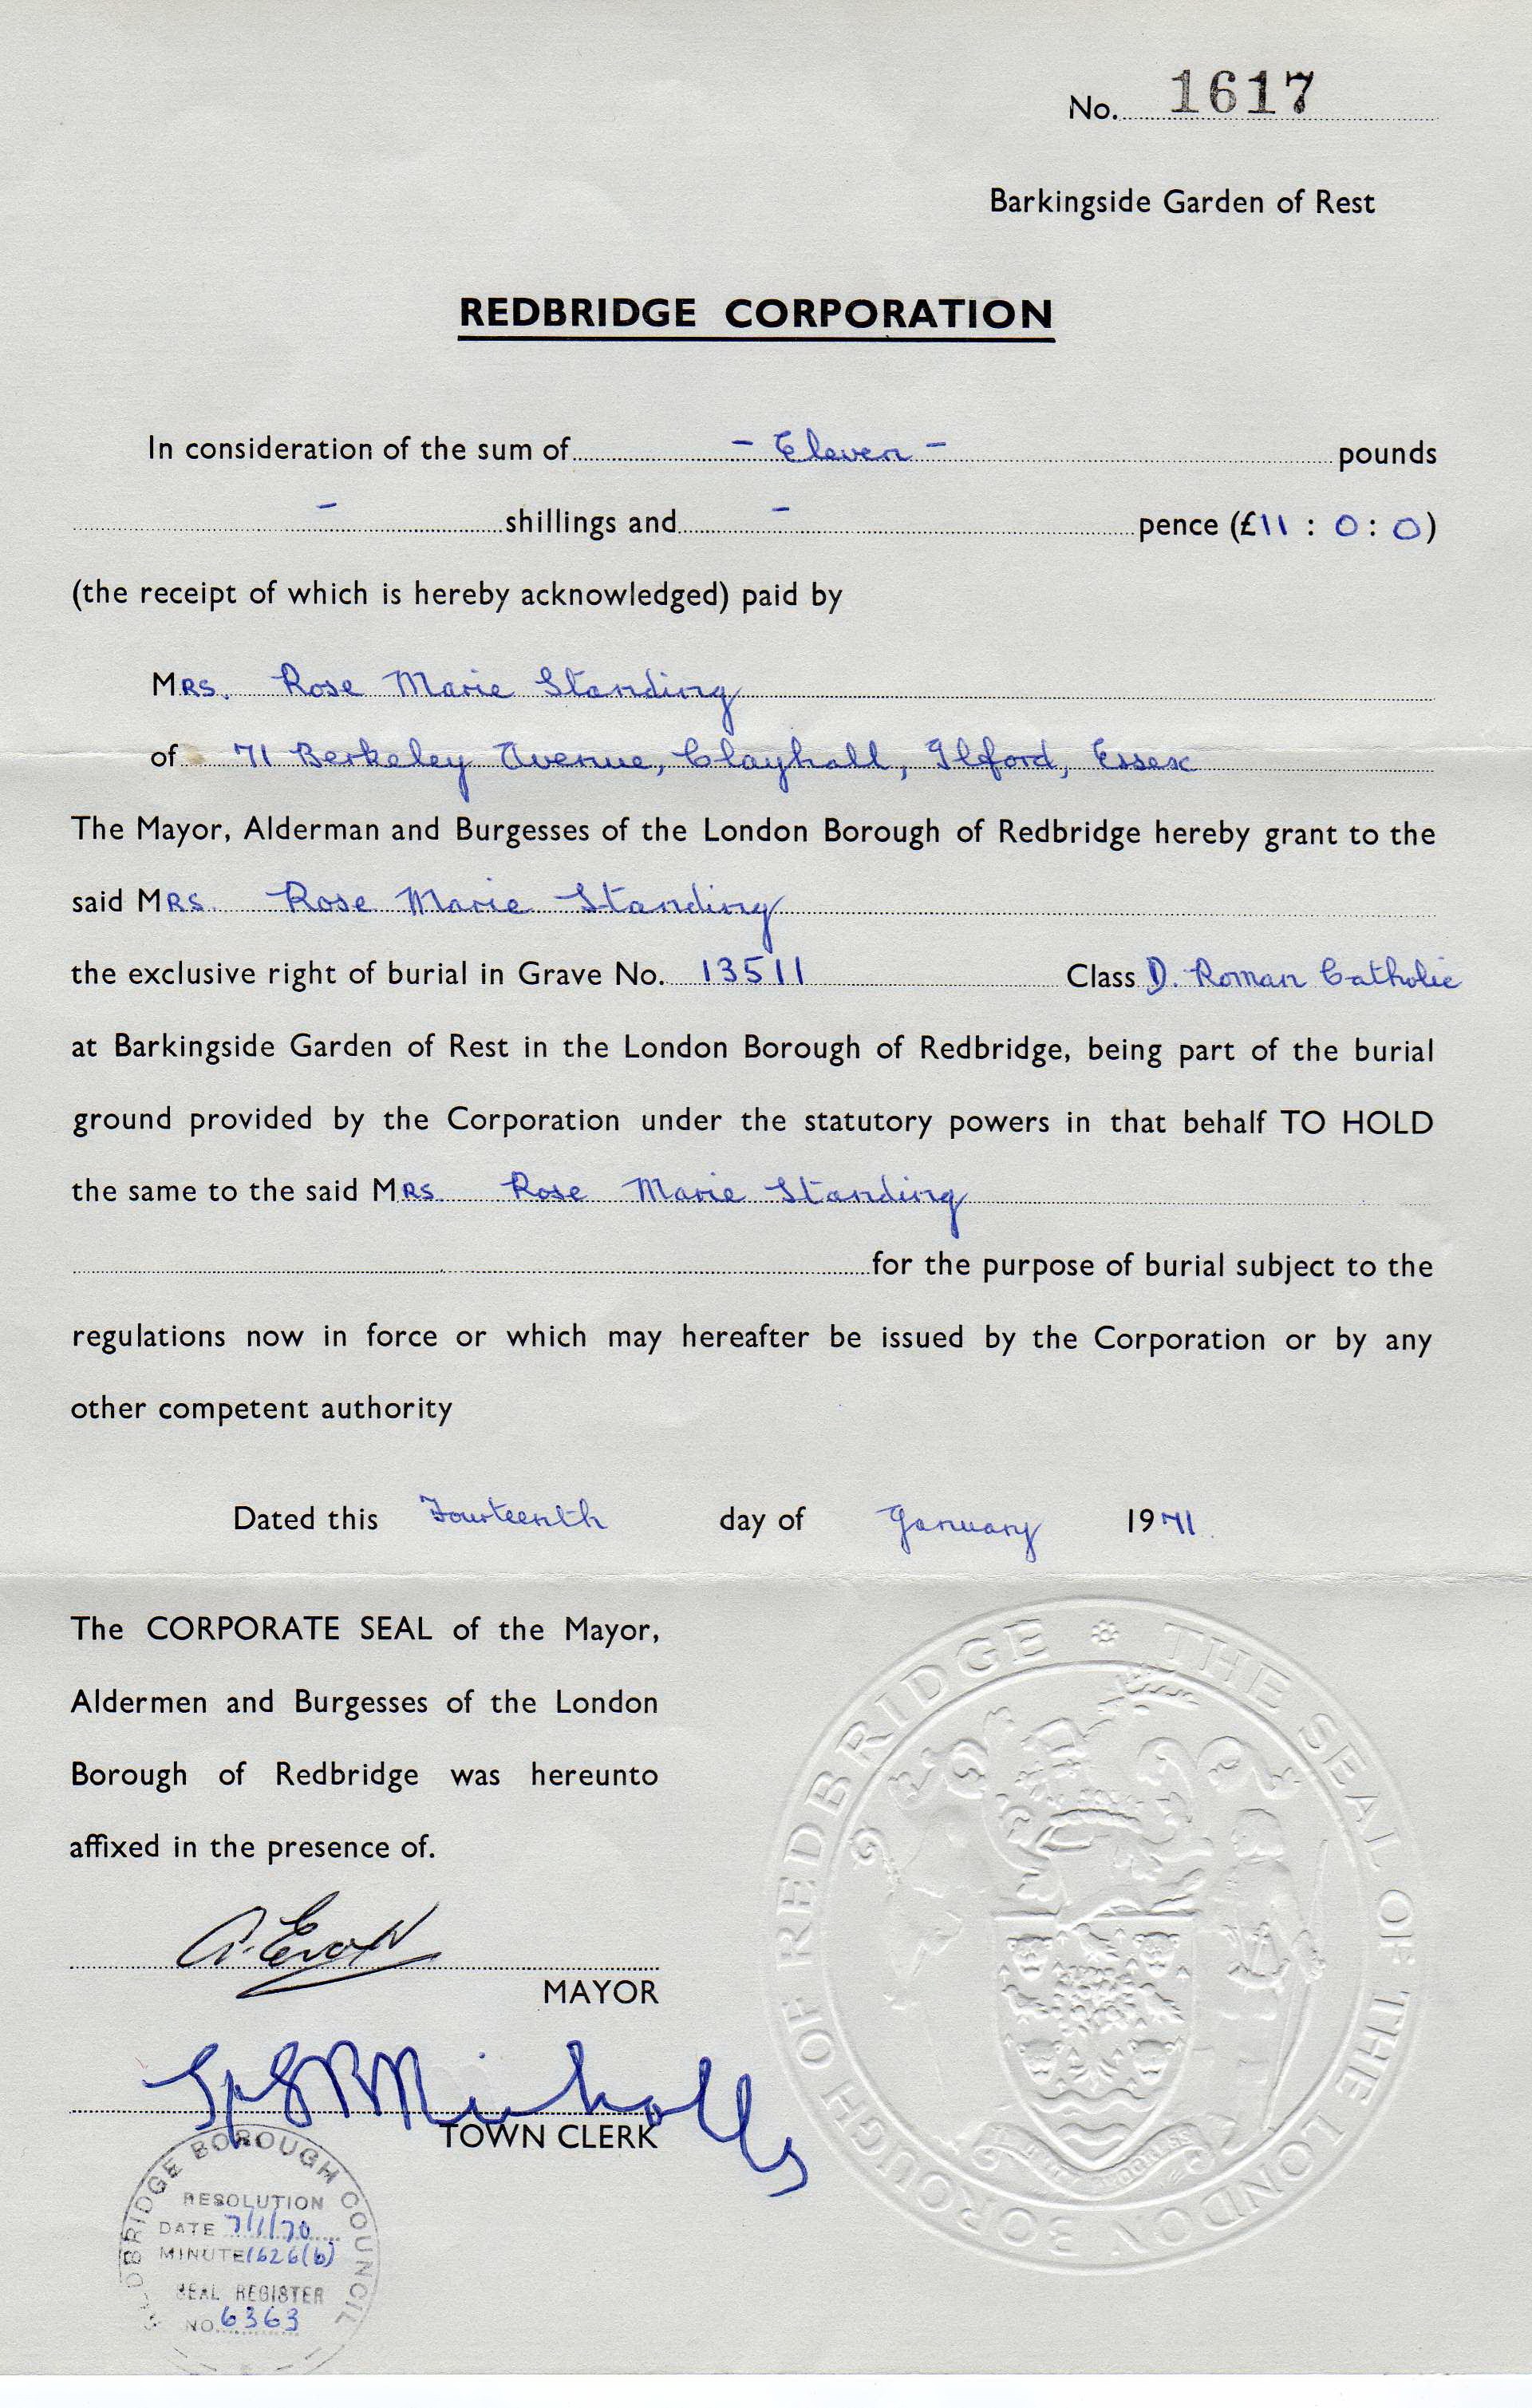 No. 1617
Barkingside Garden of Rest
REDBRIDGE CORPORATION
In consideration of the sum of - Eleven - pounds
- shillings and - pence (£11 : 0 : 0)
(the receipt of which is hereby acknowledged) paid by
MRS. Rose Marie Standing
of 71 Berkeley Avenue, Clayhall, Ilford, Essex
The Mayor, Alderman and Burgesses of the London Borough of Redbridge hereby grant to the
said MRS. Rose Marie Standing
the exclusive right of burial in Grave No. 13511 Class D. Roman Catholic
at Barkingside Garden of Rest in the London Borough of Redbridge, being part of the burial
ground provided by the Corporation under the statutory powers in that behalf TO HOLD
the same to the said MRS Rose Marie Standing
for the purpose of burial subject to the
regulations now in force or which may hereafter be issued by the Corporation or by any
other competent authority
Dated this Fourteenth day of January 1971.
The CORPORATE SEAL of the Mayor,
Aldermen and Burgesses of the London
Borough of Redbridge was hereunto
affixed in the presence of.
MAYOR
Nicholls
TOWN CLERK
THE SEAL OF THE LONDON BOROUGH OF REDBRIDGE
REDBRIDGE BOROUGH COUNCIL
RESOLUTION
DATE 7/1/70
MINUTE 1626(b)
SEAL REGISTER
NO. 6363